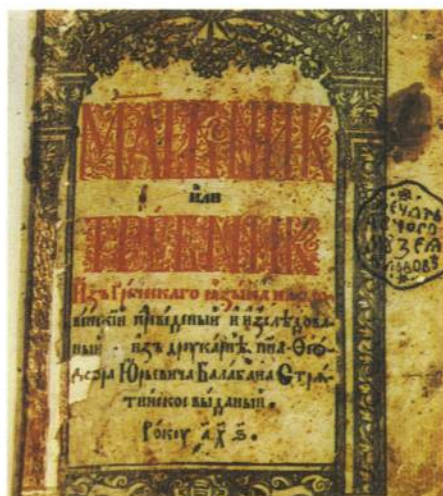 МЛТВНИК
или
ТРЕБНИК
Изъ Греческаго ѧзыка на сло
венскїй преведеный и изслѣдова
ный изъ друкарнѣ пна Ѳео
дѡра Юрьевича Балабана Стрѧ
тинское выданый.
Року ҂а҃ х҃ ѕ҃.
ЧОГО
МУЗЕЯ